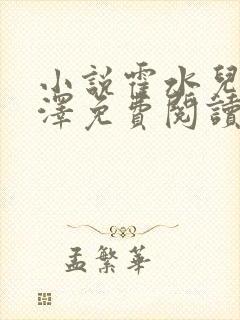 小説霍水兒
澤免費閱讀
孟繁華